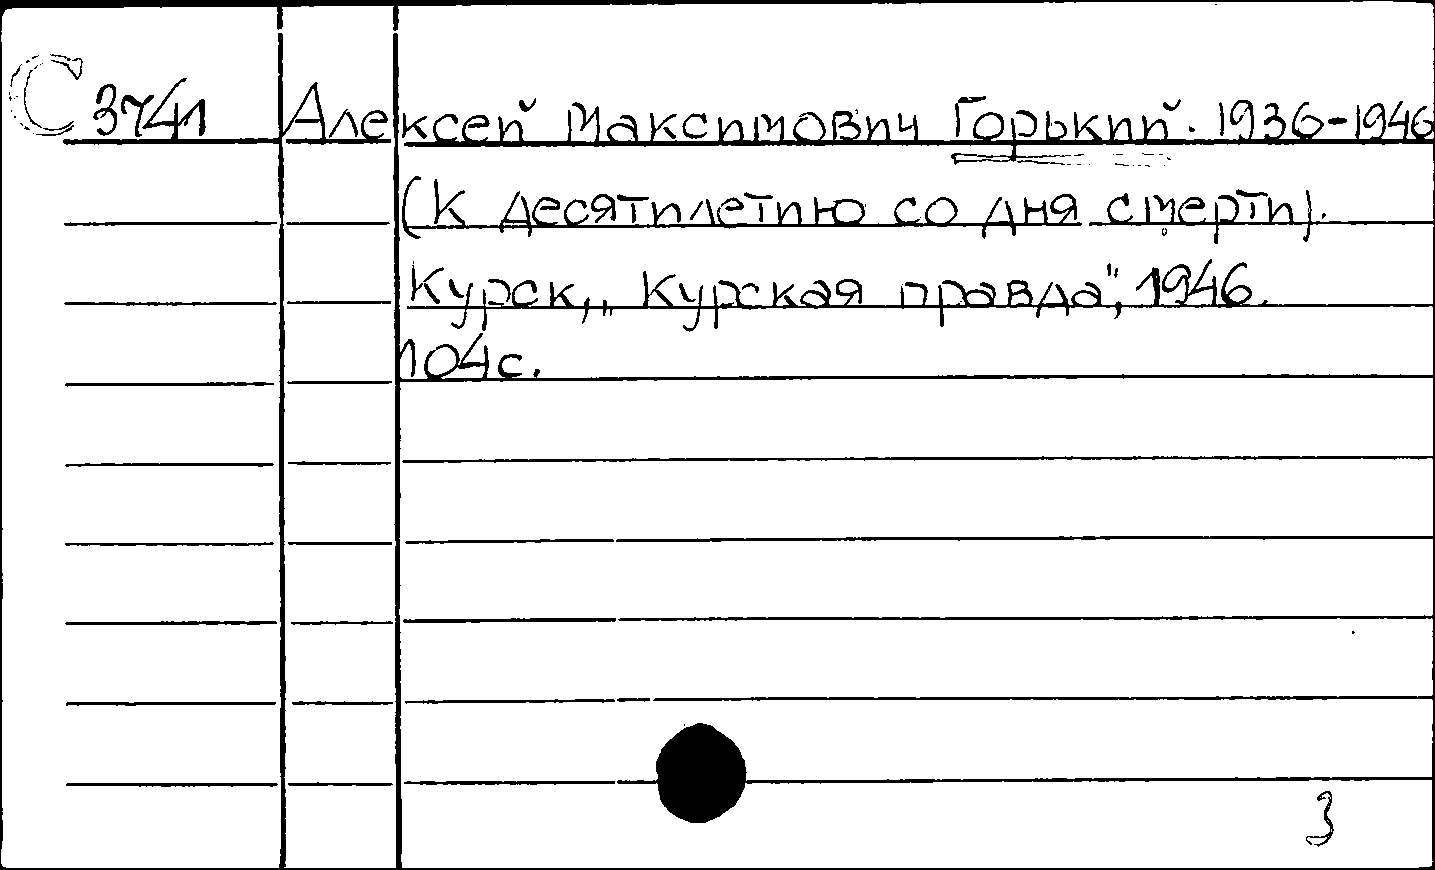 С 3741 Алексей Максимович Горький. 1936-1946
(К десятилетию со дня смерти).
Курск, „Курская правда", 1946.
104с.
3